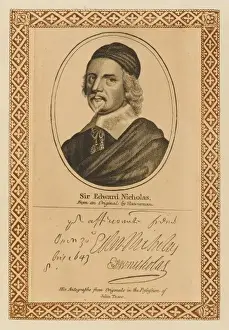 Sir Edward Nicholas.
from an Original by Hanneman.
yr affectionat
Edw Nicholas
1647
Edw: nicholas
His Autographs from Originals in the Possession of
John Thane.